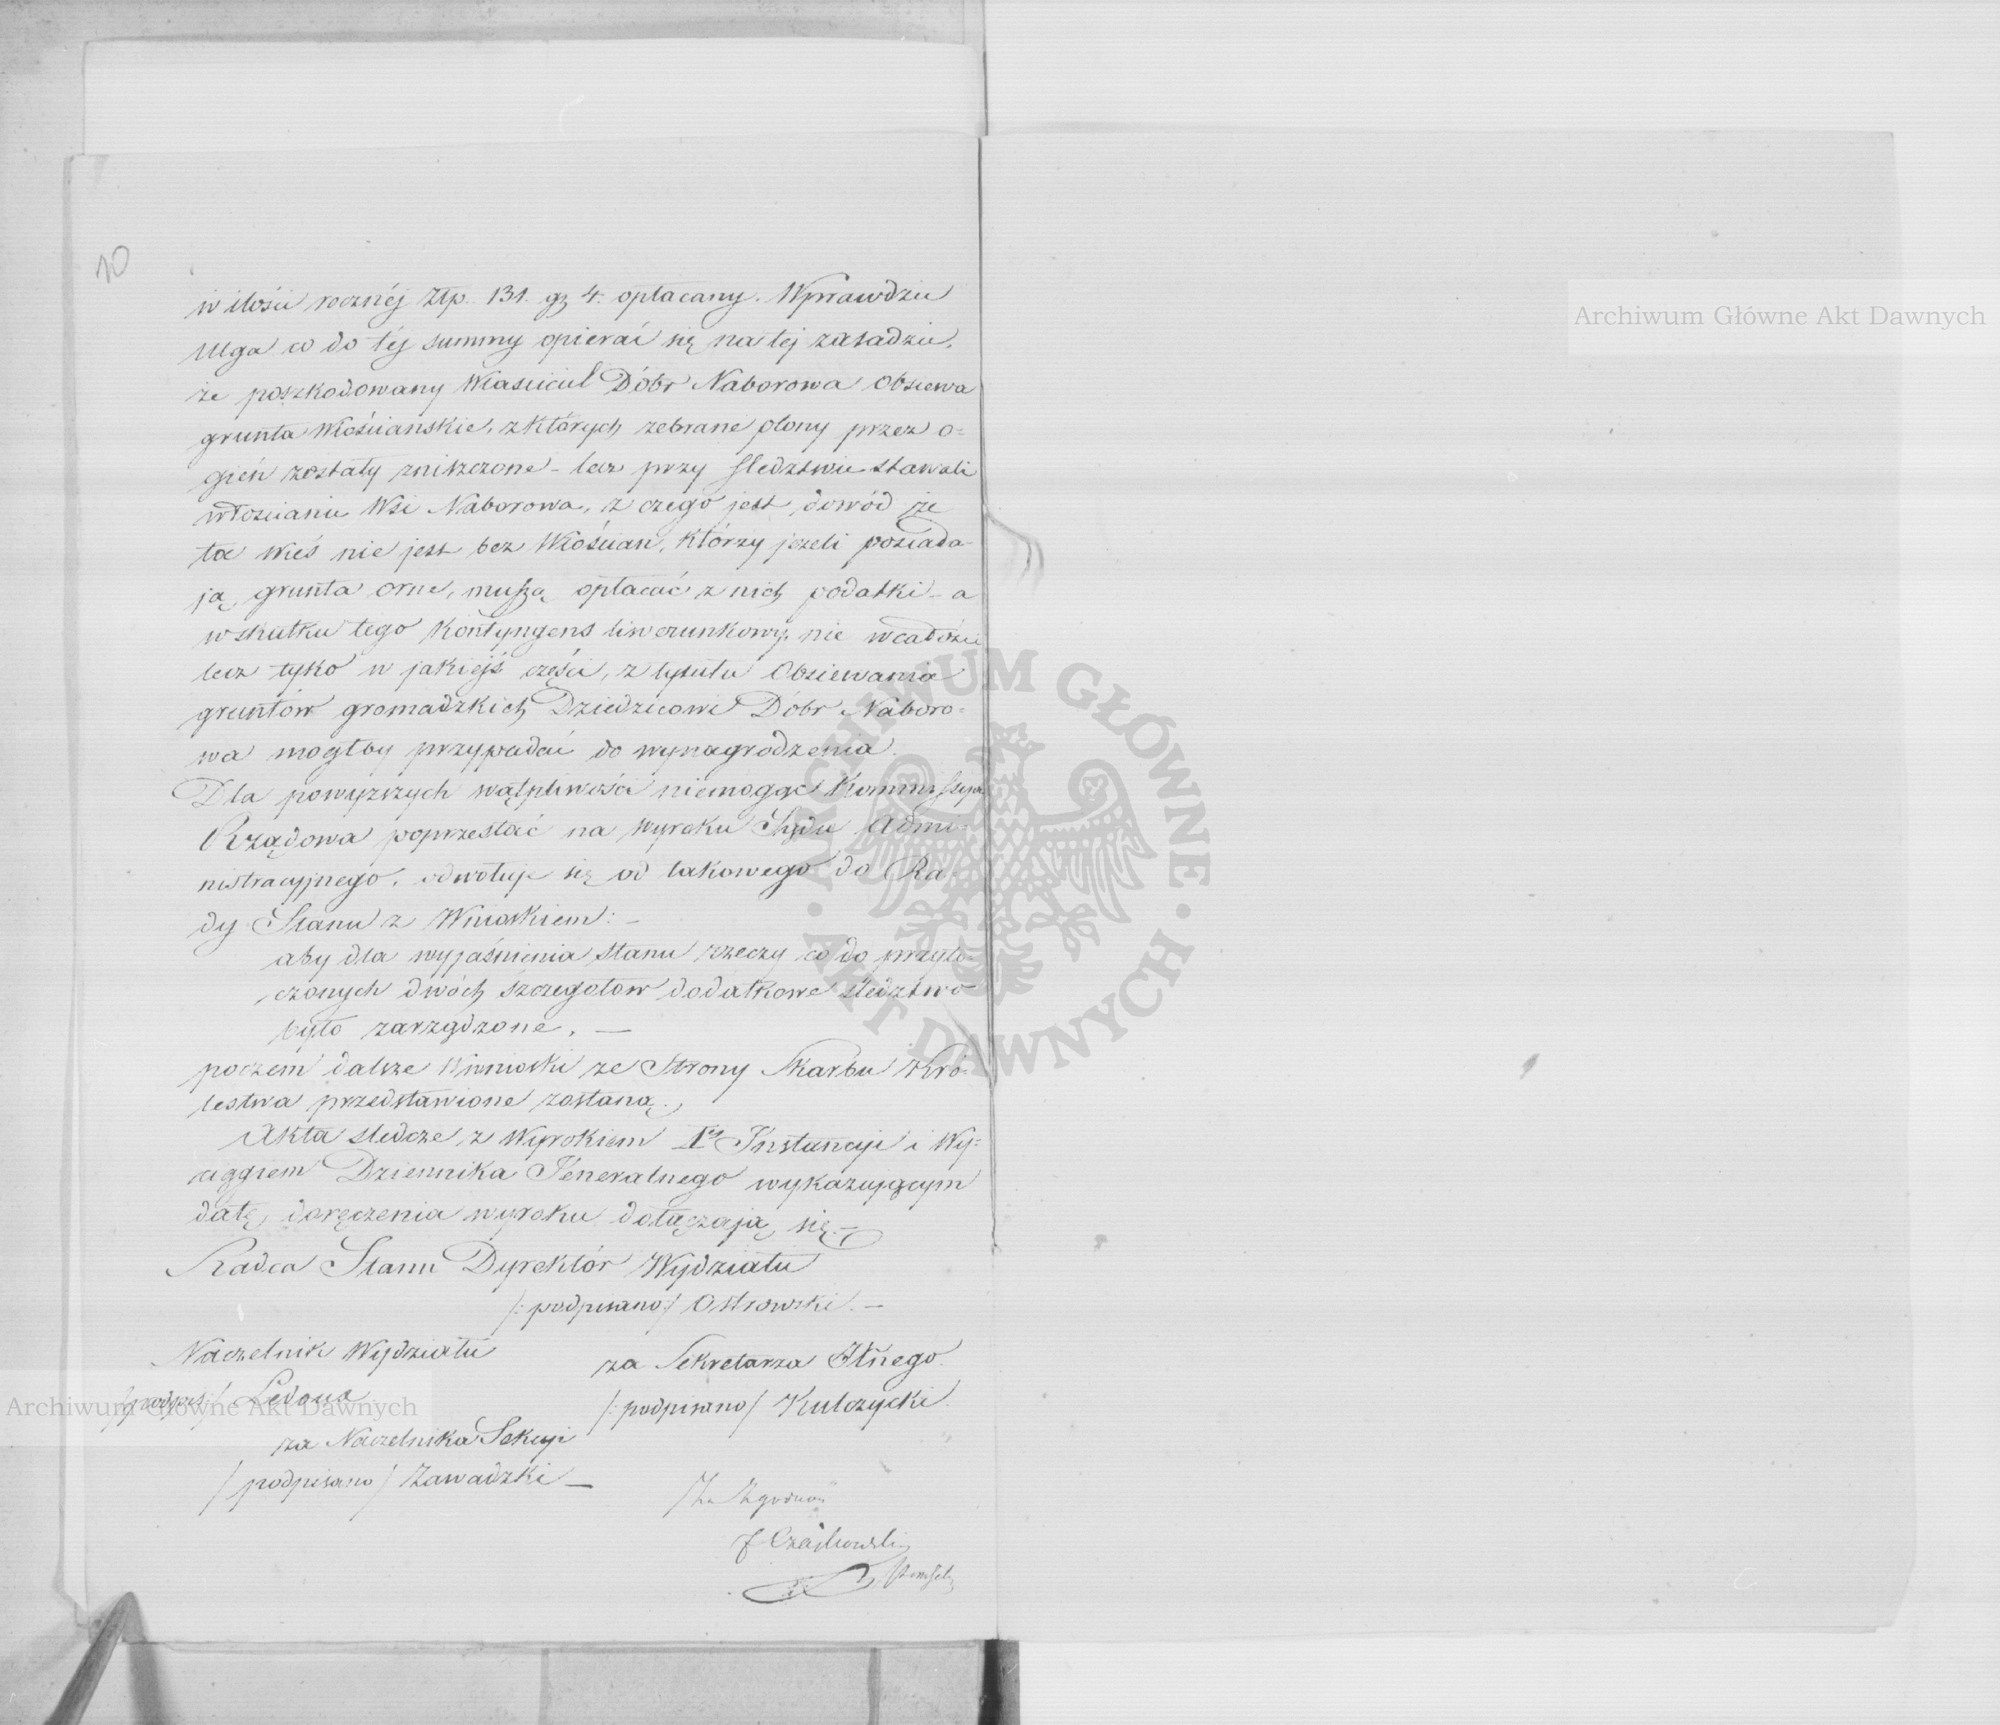 10
w ilości rocznéj Złp. 131. gr 4. opłacany. Wprawdzie
Ulga co do téj summy opierać się na tej zasadzie,
że poszkodowany Właściciel Dóbr Naborowa Obsiewa
grunta Włościańskie, z których zebrane plony przez o=
gień zostały zniszczone – lecz przy śledztwie stawali
włościanie Wsi Naborowa, z czego jest dowód że
ta wieś nie jest bez Włościan, którzy jeżeli posiada-
ją grunta orne, muszą opłacać z nich podatki – a
w skutku tego Kontyngens liwerunkowy, nie w całości
lecz tylko w jakiejś części, z tytułu Obsiewania
gruntów gromadzkich Dziedzicowi Dóbr Naboro=
wa mógłby przypadać do wynagrodzenia.
Dla powyższych wątpliwości niemogąc Kommissya
Rządowa poprzestać na wyroku Sądu Admi=
nistracyjnego, odwołuje się od takowego do Ra=
dy Stanu z Wnioskiem: –
aby dla wyjaśnienia stanu rzeczy co do przyto=
czonych dwóch szczegółow dodatkowe śledztwo
było zarządzone. —
poczem dalsze Wnioski ze Strony Skarbu Kró=
lestwa przedstawione zostaną.
Akta śledcze z Wyrokiem Iéj Instancyi i Wy=
ciągiem Dziennika Jeneralnego wykazującym
datę doręczenia wyroku dołączają się. –
Radca Stanu Dyrektór Wydziału
/: podpisano :/ Ostrowski. –
Naczelnik Wydziału
za Sekretarza Jlnego.
/: podpisano / Kulczycki.
za Naczelnika Sekcyi
/ podpisano / Zawadzki –
Za Zgodność
Czajkowski
Archiwum Główne Akt Dawnych
Archiwum Główne Akt Dawnych
ARCHIWUM GŁÓWNE · AKT DAWNYCH ·